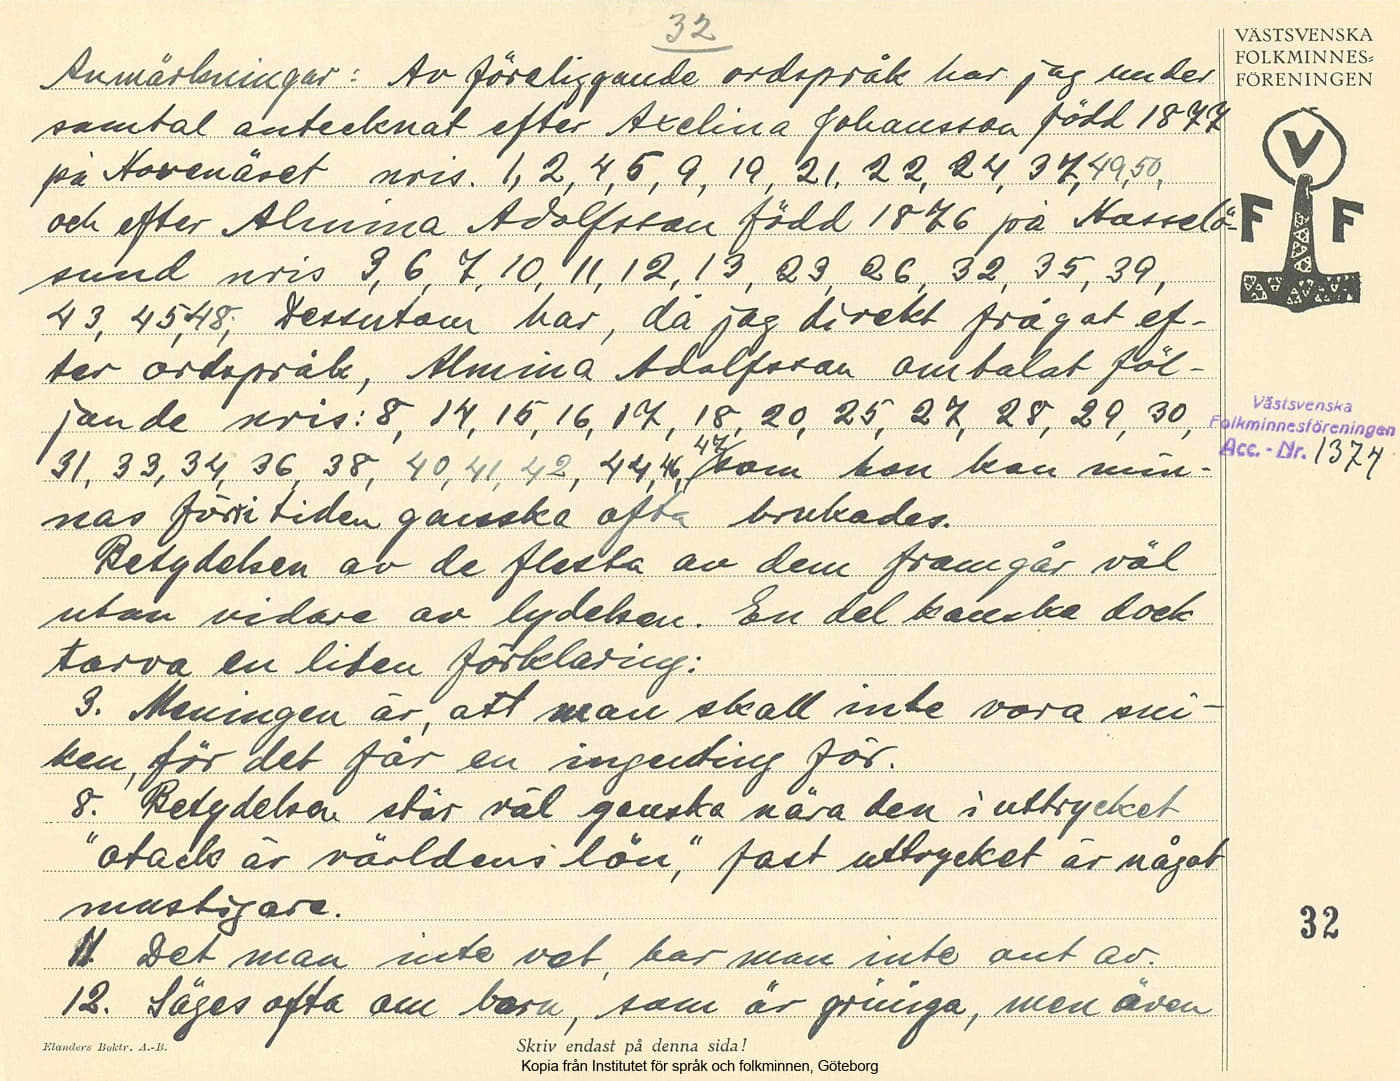 32
VÄSTSVENSKA
FOLKMINNES=
FÖRENINGEN
V
F F
Anmärkningar: Av föreliggande ordspråk har jag under
samtal antecknat efter Axelina Johansson född 1877
på Hovenäset nris. 1, 2, 4, 5, 9, 19, 21, 22, 24, 37, 49, 50,
och efter Almina Adolfsson född 1876 på Hasselö-
sund nris 3, 6, 7, 10, 11, 12, 13, 23, 26, 32, 35, 39,
43, 45, 48; Dessutom har, då jag direkt frågat ef-
ter ordspråk, Almina Adolfsson omtalat föl-
jande nris: 8, 14, 15, 16, 17, 18, 20, 25, 27, 28, 29, 30,
31, 33, 34, 36, 38, 40, 41, 42, 44, 46, 47 som hon kan min-
nas förr i tiden ganska ofta brukades.
Betydelsen av de flesta av dem framgår väl
utan vidare av lydelsen. En del kanske dock
tarva en liten förklaring:
3. Meningen är, att man skall inte vara sni-
ken, för det får en ingenting för.
8. Betydelsen står väl ganska nära den i uttrycket
"otack är världens lön," fast uttrycket är något
mustigare.
11. Det man inte vet, har man inte ont av.
12. Säges ofta om barn, som är griniga, men även
Västsvenska
Folkminnesföreningen
Acc. - Nr. 1374
32
Elanders Boktr. A.-B.
Skriv endast på denna sida!
Kopia från Institutet för språk och folkminnen, Göteborg